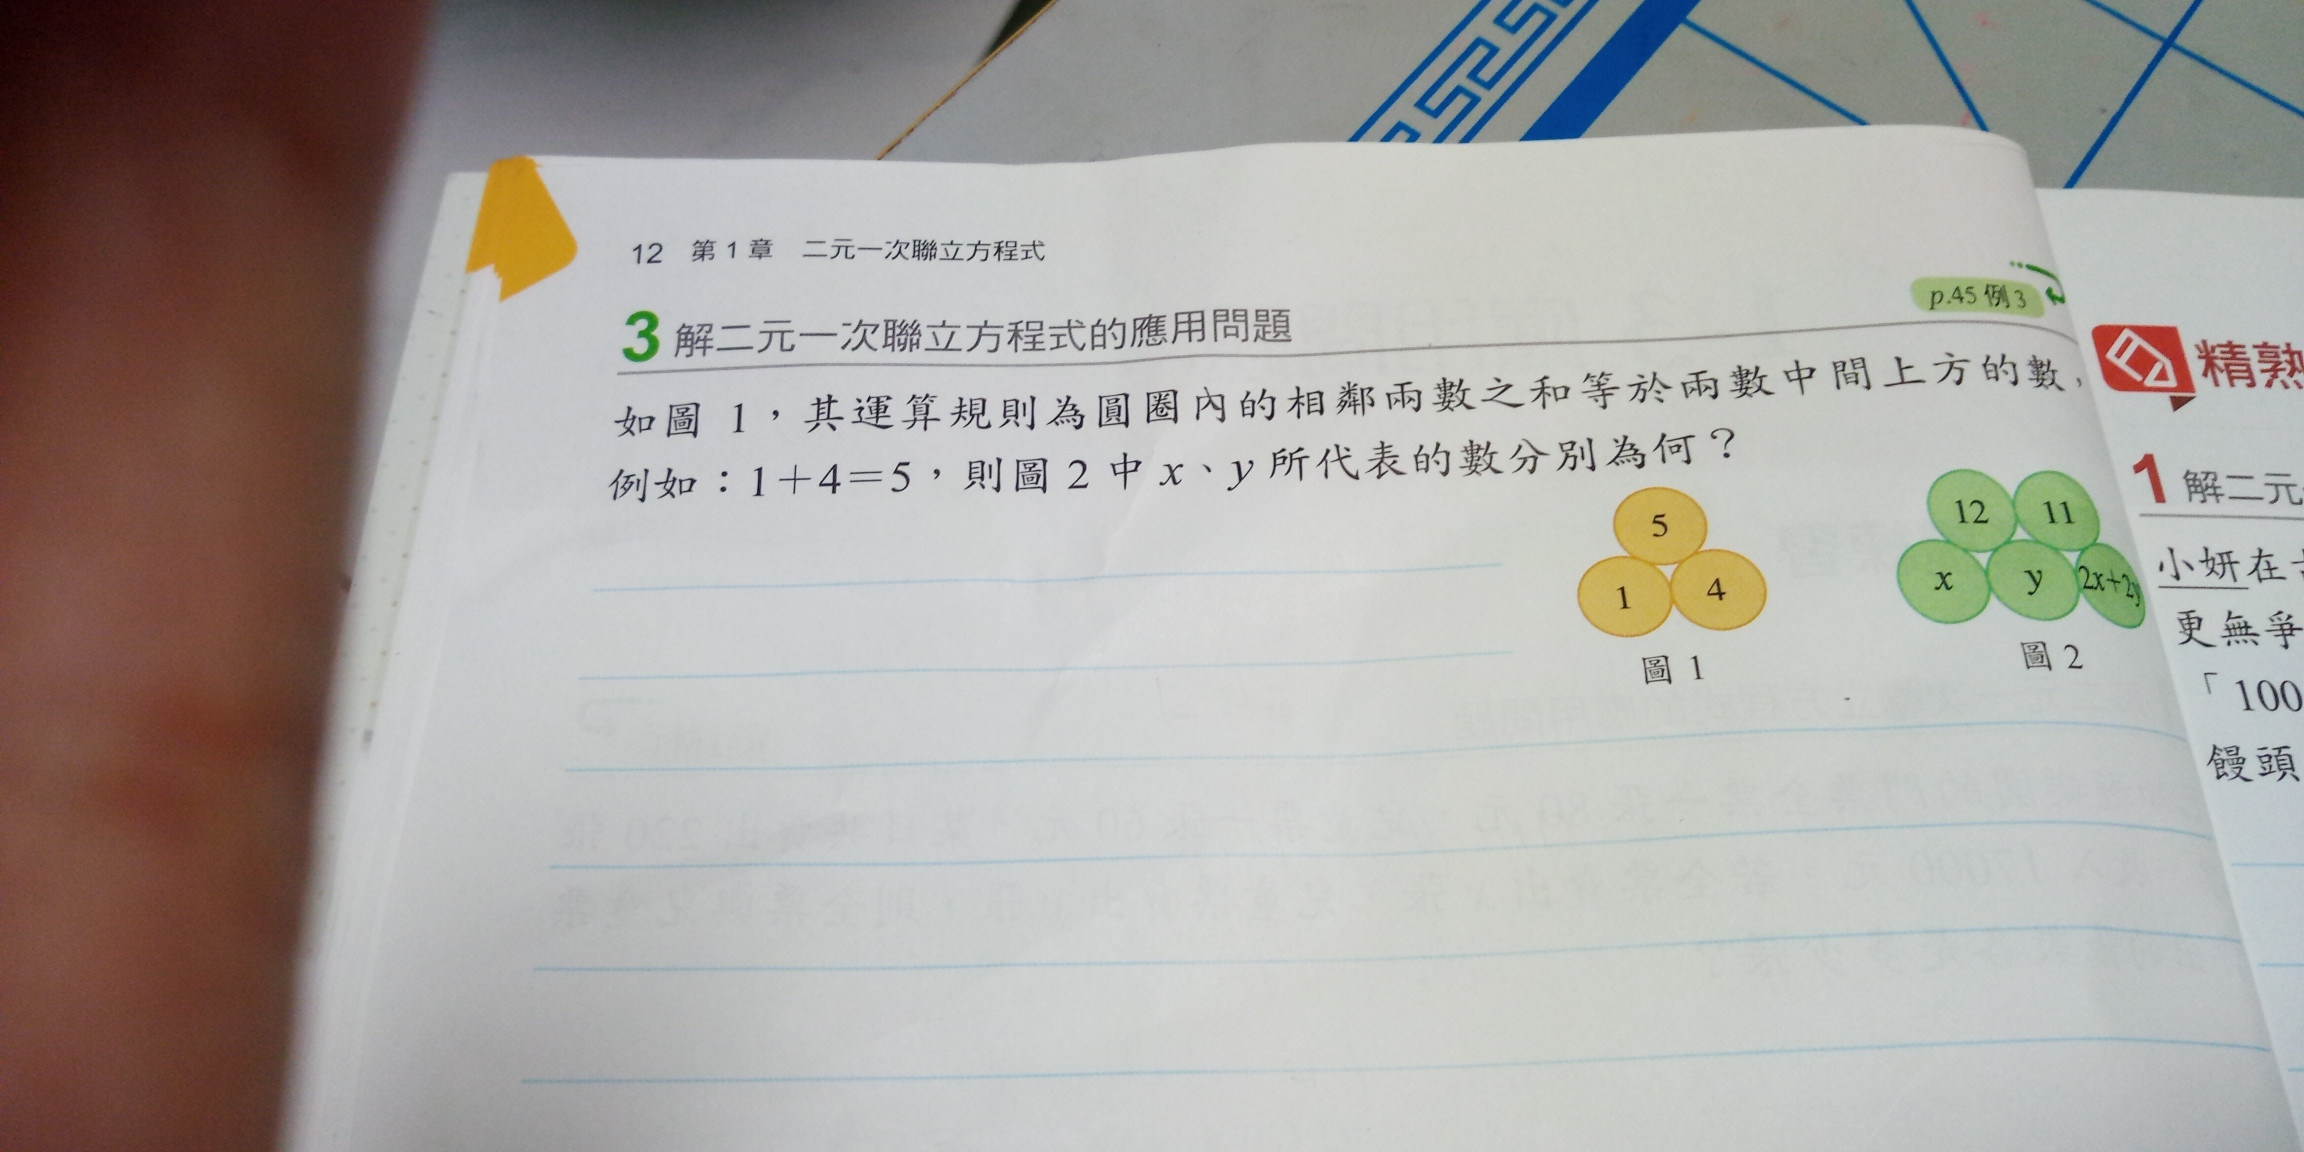 12 第1章 二元一次聯立方程式
p.45 例3
3 解二元一次聯立方程式的應用問題
如圖 1，其運算規則為圓圈內的相鄰兩數之和等於兩數中間上方的數，
例如：1＋4＝5，則圖 2 中 x、y 所代表的數分別為何？
5
1 4
圖 1
12 11
x y 2x+2y
圖 2
精熟
1 解二元
小妍在
更無爭
「100
饅頭